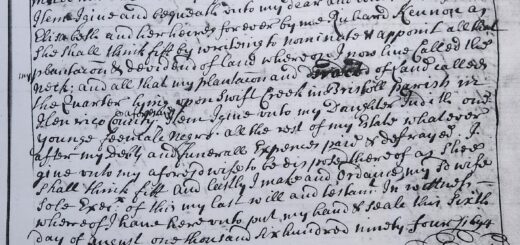 Item I give and bequeath unto my dear and
Elizabeth and her heires forever by mee Richard Kennon as
She shall think fitt by writeing to nominate & appoint all that
plantacon & devidend of land where on I now live Called the
neck: and all that my plantacon and tract of land called
the Quarter lying upon Swift Creek in Bristoll Parish in
Henrico County aforesaid Item I give unto my Daughter Judith one
Younge feemale Negro. all the rest of my Estate whatever
after my Debts and funerall Expences paid & defrayed. I
give unto my aforesd wife to be disposed thereof as Shee
shall think fitt And Lastly I make and Ordaine my sd wife
Sole Execx. of this my last will and testamt. In wittness
whereof I have here unto put my hand & seale this Sixth
day of August one thousand six hundred ninety four 1694